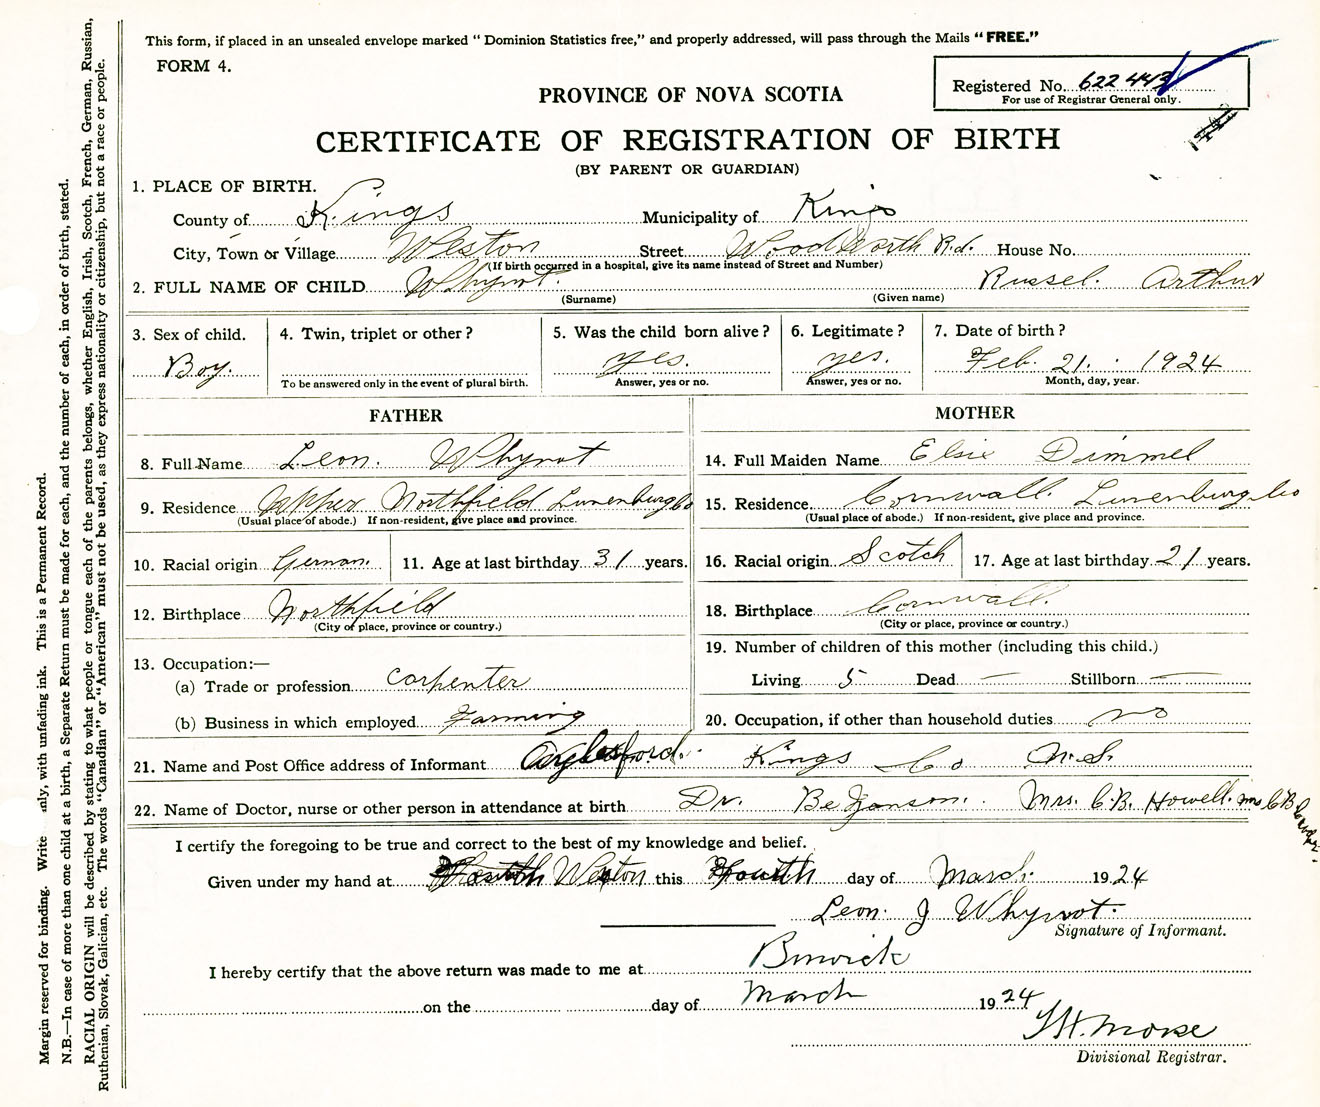 This form, if placed in an unsealed envelope marked "Dominion Statistics free," and properly addressed, will pass through the Mails "FREE."
FORM 4.
Registered No. 622443
For use of Registrar General only.
PROVINCE OF NOVA SCOTIA
CERTIFICATE OF REGISTRATION OF BIRTH
(BY PARENT OR GUARDIAN)
1. PLACE OF BIRTH.
County of Kings Municipality of Kings
City, Town or Village Weston Street Woodworth Rd. House No.
(If birth occurred in a hospital, give its name instead of Street and Number)
2. FULL NAME OF CHILD Whynot. Russel. Arthur
(Surname) (Given name)
3. Sex of child. Boy.
4. Twin, triplet or other?
To be answered only in the event of plural birth.
5. Was the child born alive? yes.
Answer, yes or no.
6. Legitimate? yes.
Answer, yes or no.
7. Date of birth? Feb. 21. 1924
Month, day, year.
FATHER
8. Full Name Leon. Whynot
9. Residence Upper Northfield Lunenburg Co
(Usual place of abode.) If non-resident, give place and province.
10. Racial origin German. 11. Age at last birthday 31 years.
12. Birthplace Northfield
(City or place, province or country.)
13. Occupation:—
(a) Trade or profession Carpenter
(b) Business in which employed Farming
MOTHER
14. Full Maiden Name Elsie Dimmel
15. Residence Cornwall. Lunenburg Co
(Usual place of abode.) If non-resident, give place and province.
16. Racial origin Scotch 17. Age at last birthday 21 years.
18. Birthplace Cornwall.
(City or place, province or country.)
19. Number of children of this mother (including this child.)
Living 5 Dead — Stillborn —
20. Occupation, if other than household duties no
21. Name and Post Office address of Informant Aylesford. Kings Co N.S.
22. Name of Doctor, nurse or other person in attendance at birth Dr. Mrs. C.B. Howell.
I certify the foregoing to be true and correct to the best of my knowledge and belief.
Given under my hand at Weston this Fourth day of March. 1924
Leon. J Whynot.
Signature of Informant.
I hereby certify that the above return was made to me at Berwick
on the day of March 1924
Morse
Divisional Registrar.
Margin reserved for binding. Write only, with unfading ink. This is a Permanent Record.
N.B.—In case of more than one child at a birth, a Separate Return must be made for each, and the number of each, in order of birth, stated.
RACIAL ORIGIN will be described by stating to what people or tongue each of the parents belongs, whether English, Irish, Scotch, French, German, Russian,
Ruthenian, Slovak, Galician, etc. The words "Canadian" or "American" must not be used, as they express nationality or citizenship, but not a race or people.